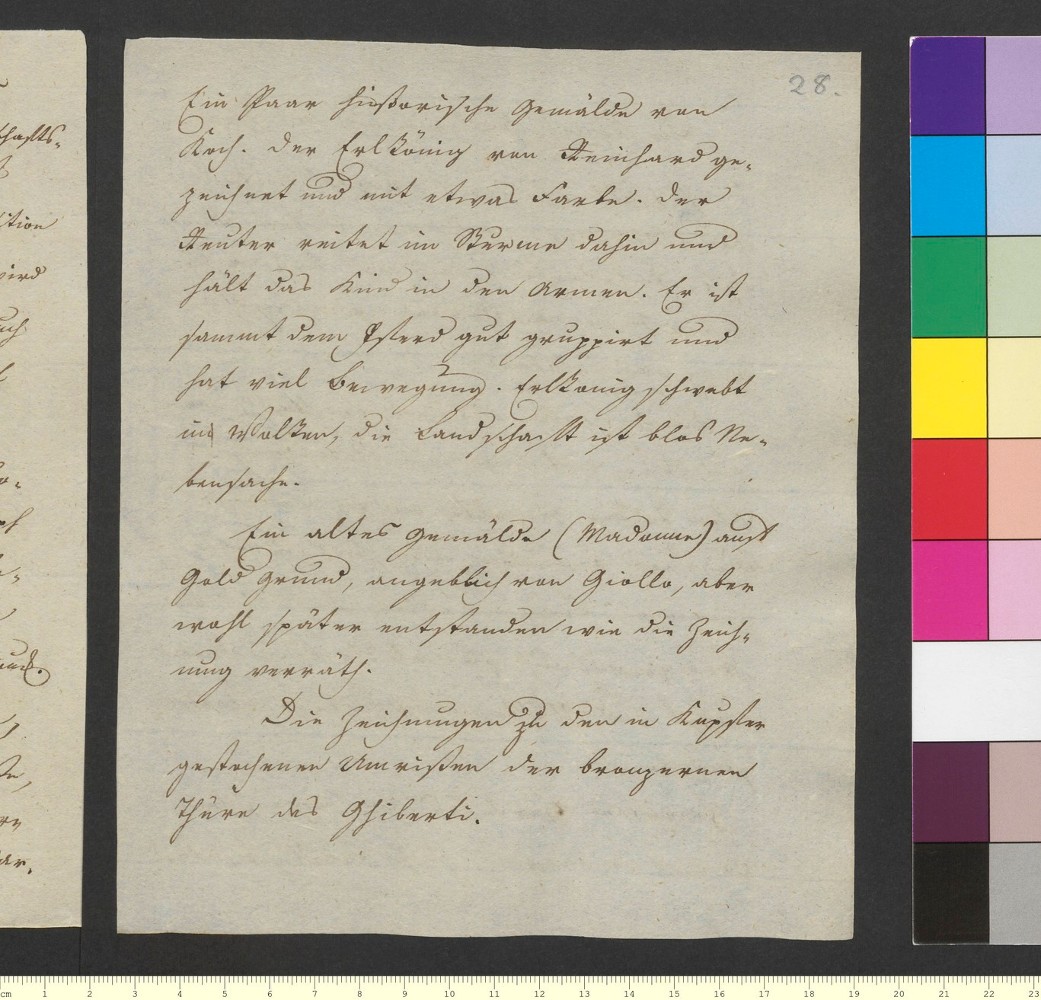 28.
Ein Paar historische Gemälde von
Koch. Der Erlkönig von Reinhard ge-
zeichnet und mit etwas Farbe. Der
Reuter reitet im Sturme dahin und
hält das Kind in den Armen. Er ist
sammt dem Pferd gut gruppirt und
hat viel Bewegung. Erlkönig schwebt
in Wolken, die Landschaft ist blos Ne-
bensache.
Ein altes Gemälde (Madonne) auf
Gold Grund, angeblich von Giotto, aber
wohl später entstanden wie die Zeich-
nung verräth.
Die Zeichnungen zu den in Kupfer
gestochenen Umrißen der bronzernen
Thüre des Ghiberti.